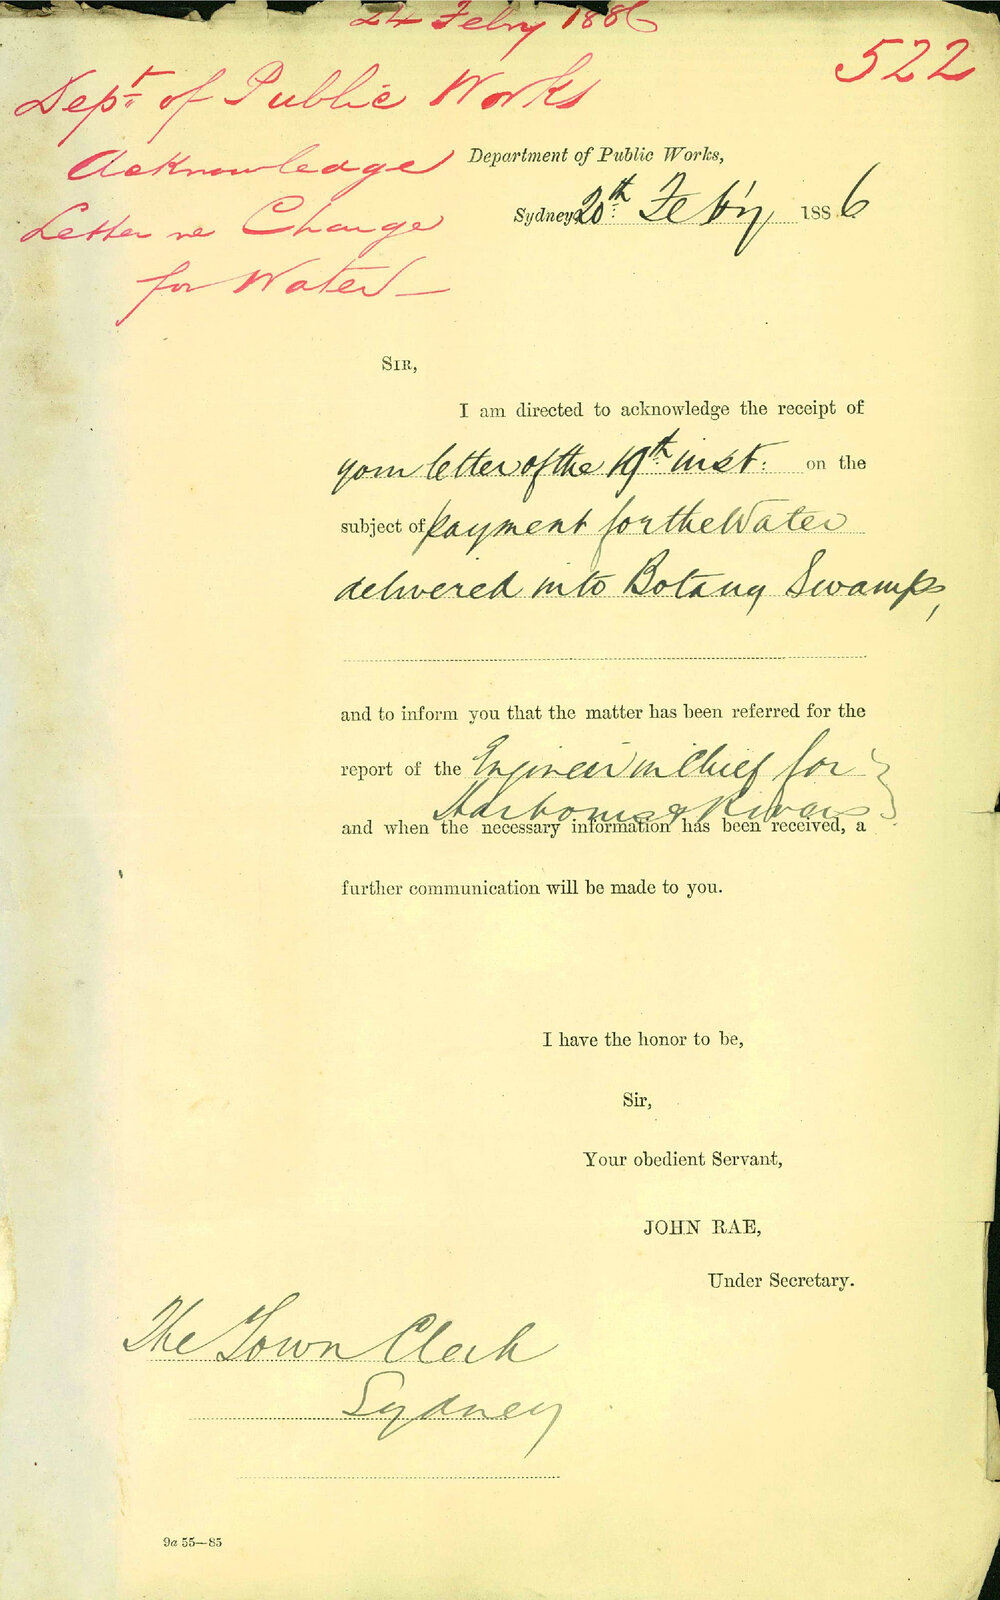 24 Febry 1886
522
Dept. of Public Works
Acknowledge
Letter re Charge
for Water —
Department of Public Works,
Sydney 20th Feb'y 1886
SIR,
I am directed to acknowledge the receipt of
your letter of the 19th inst: on the
subject of payment for the Water
delivered into Botany Swamps,
and to inform you that the matter has been referred for the
report of the Engineer in Chief for
Harbours & Rivers
and when the necessary information has been received, a
further communication will be made to you.
I have the honor to be,
Sir,
Your obedient Servant,
JOHN RAE,
Under Secretary.
The Town Clerk
Sydney
9a 55—85